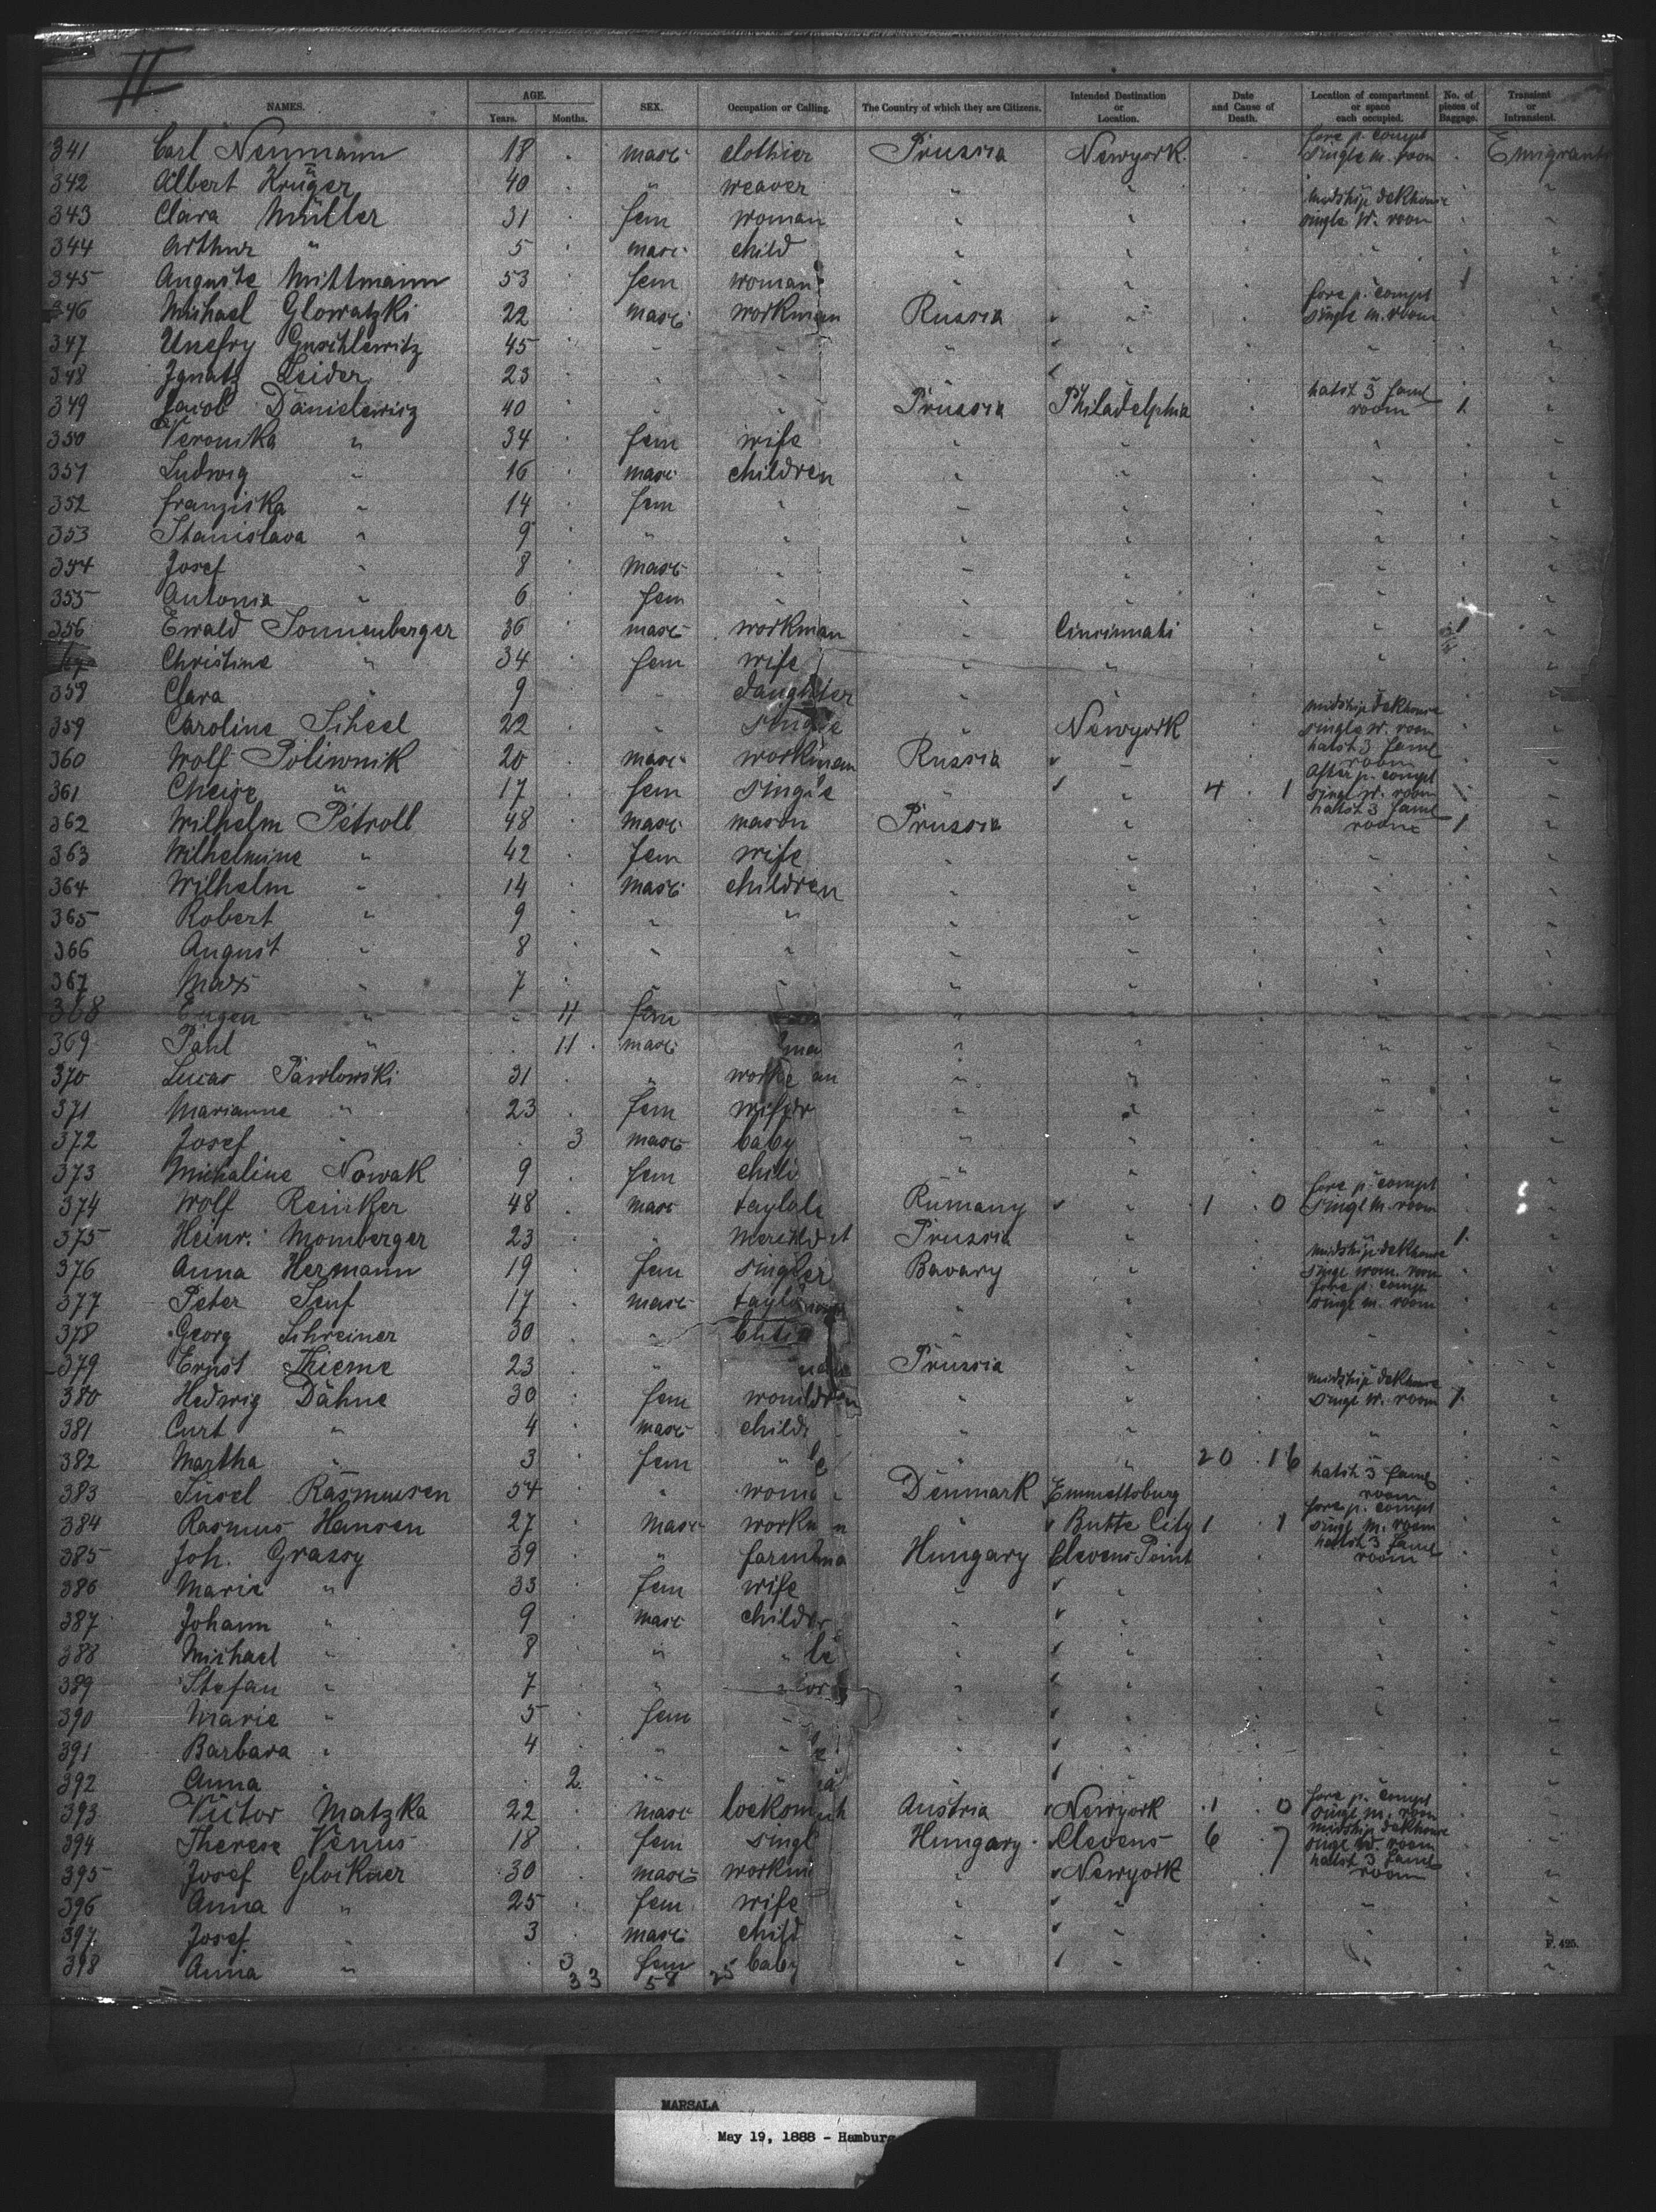 II
NAMES. AGE. Years. Months. SEX. Occupation or Calling. The Country of which they are Citizens. Intended Destination or Location. Date and Cause of Death. Location of compartment or space each occupied. No. of pieces of Baggage. Transient or Intransient.
341 Carl Neumann 18 masc clothier Prussia Newyork. fore p. compt single m. room Emigrant
342 Albert Krüger 40 " weaver " "
343 Clara Müller 31 fem woman " " midship dekhouse single w. room "
344 Arthur " 5 masc child " " " "
345 Auguste Mittmann 53 fem woman " " " 1 "
346 Michael Glowatzki 22 masc workman Russia " fore p. compt single m. room "
347 45 " " " " " "
348 Ignatz Leider 23 " "
349 Jacob 40 " " Prussia Philadelphia hatch 3 faml room 1 "
350 Veronika " 34 fem wife " " " "
351 Ludwig " 16 masc children " " " "
352 Franziska " 14 fem " " " " "
353 Stanislava " 9 " " " " " "
354 Josef " 8 masc " " " " "
355 Antonia " 6 fem " " " " "
356 Ewald Sonnenberger 36 masc workman " Cincinnati 1 "
Christine " 34 fem wife " " " "
358 Clara " 9 " daughter " " "
359 Caroline Scheel 22 " single " Newyork midship dekhouse single w. room "
360 Wolf Poliwnik 20 masc workman Russia " hatch 3 faml room "
361 Cheise " 17 fem single " " 4 1 After p. compt singl w. room "
362 Wilhelm Petroll 48 masc mason Prussia " hatch 3 faml room 1 "
363 Wilhelmine " 42 fem wife " " " "
364 Wilhelm " 14 masc children " " " "
365 Robert " 9 " " " " " "
366 August " 8 " " " " " "
367 Max " 7 " " " " "
368 Eugen " 11 fem " " " "
369 Paul " 11 masc " " " "
370 Lucas Pawlowski 31 " " " " "
371 Marianne " 23 fem " " " "
372 Josef " 3 masc baby " " " "
373 Michaline Nowak 9 fem " " "
374 Wolf Reinker 48 masc Rumany " 1 0 fore p. compt singl m. room "
375 Heinr. Momberger 23 " Prussia " 1 "
376 Anna Hermann 19 fem Bavary " midship dekhouse singl wom. room "
377 Peter Senf 17 masc " " fore p. compt singl m. room "
378 Georg Schreiner 30 " " " " "
379 Ernst Thieme 23 " Prussia " "
380 Hedwig Dähne 30 fem " " midship dekhouse singl w. room 1 "
381 Curt " 4 masc " " " "
382 Martha " 3 fem " " " 20 16 " "
383 Rasmussen 54 " Denmark Emmettsburg hatch 3 faml room "
384 Rasmus Hansen 27 masc " Butte City 1 1 fore p. compt singl m. room "
385 Joh. Grassy 39 " Hungary hatch 3 faml room "
386 Marie " 33 fem wife " " " "
387 Johann " 9 masc " " " "
388 Michael " 8 " " " " " "
389 Stefan " 7 " " " " " "
390 Marie " 5 fem " " " " "
391 Barbara " 4 " " " " " "
392 Anna " 2 " " " " "
393 Victor Matzka 22 masc Austria Newyork 1 0 fore p. compt singl m. room "
394 Therese Venus 18 fem singl Hungary Clevens 6 7 midship dekhouse singl w. room "
395 Josef Glockner 30 masc " Newyork hatch 3 faml room "
396 Anna " 25 fem wife " " " "
397 Josef " 3 masc child " " " "
398 Anna " 3 fem baby " " " "
33 58 25
F. 495.
MARSALA
May 19, 1888 - Hamburg